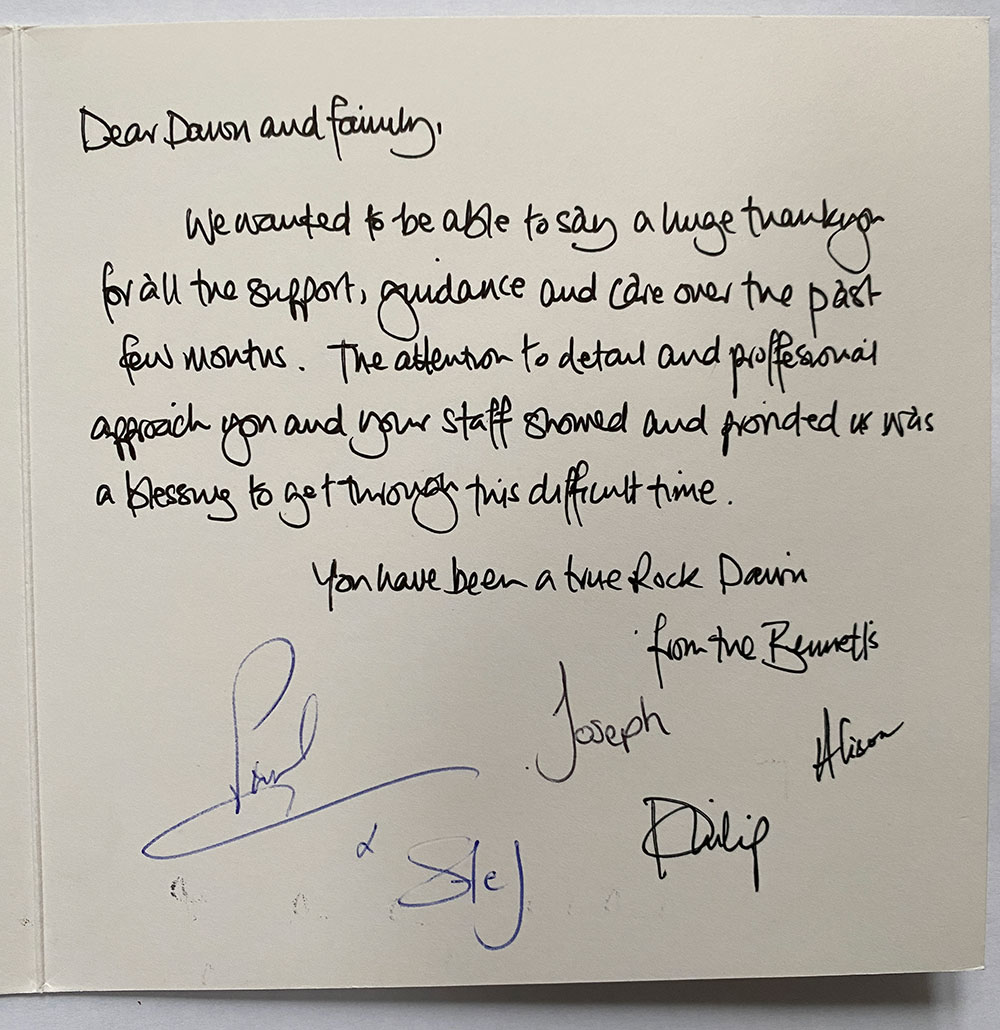 Dear Dawn and family,
We wanted to be able to say a huge thankyou
for all the support, guidance and care over the past
few months. The attention to detail and proffesional
approach you and your staff showed and provided us was
a blessing to get through this difficult time.
You have been a true Rock Dawn
from the Bennetts
Joseph
Alison
Paul
Philip
&